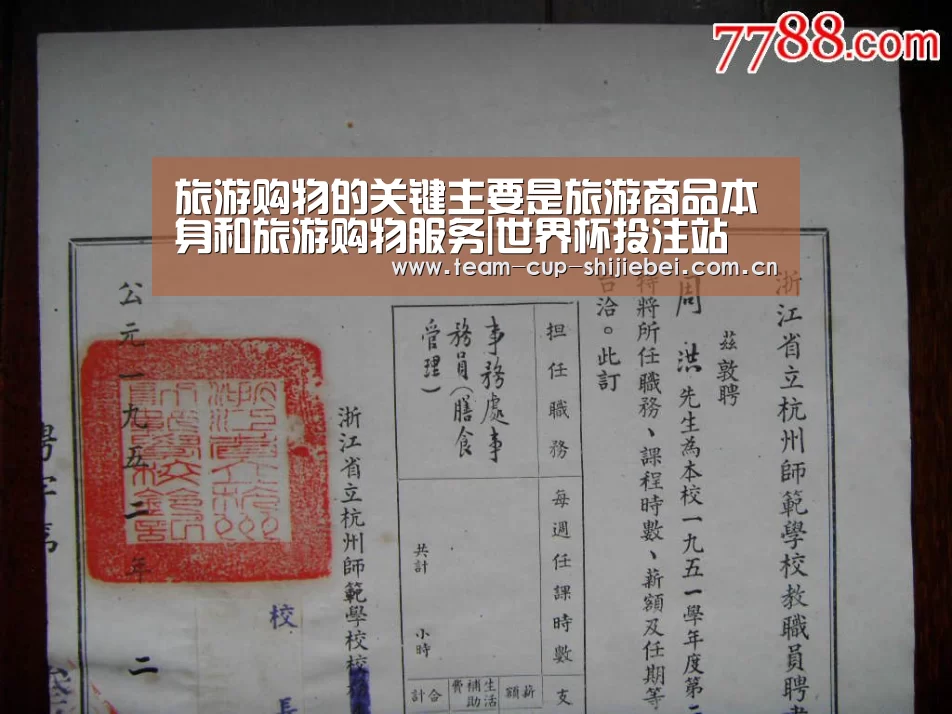 7788.com
旅游购物的关键主要是旅游商品本
身和旅游购物服务|世界杯投注站
www.team-cup-shijiebei.com.cn
浙江省立杭州師範學校教職員聘書
茲敦聘
周洪先生為本校一九五一學年度第二
特將所任職務、課程時數、薪額及任期等
台洽。此訂
担任職務
事務處事
務員（膳食
管理）
每週任課時數
共計
小時
支
薪額
生活補助費
合計
浙江省立杭州師範學校校務
校長
公元一九五二年二